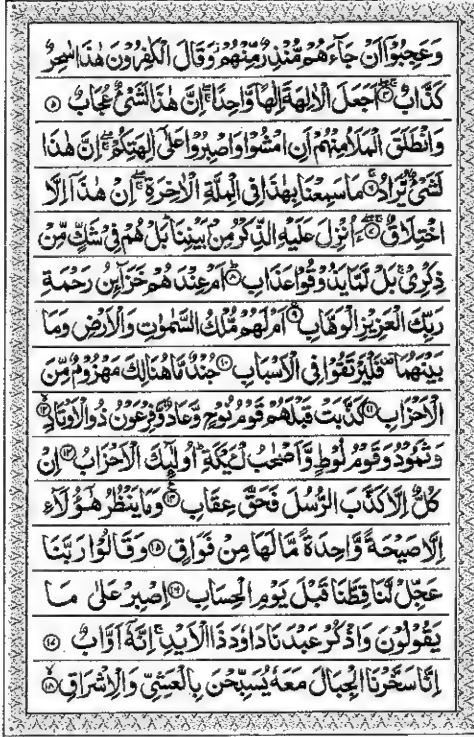 وَعَجِبُوْۤا اَنْ جَآءَهُمْ مُّنْذِرٌ مِّنْهُمْ ؗ وَقَالَ الْكٰفِرُوْنَ هٰذَا سٰحِرٌ
كَذَّابٌ ۖۚ۴ اَجَعَلَ الْاٰلِهَةَ اِلٰهًا وَّاحِدًا ۖۚ اِنَّ هٰذَا لَشَیْءٌ عُجَابٌ ۵
وَانْطَلَقَ الْمَلَاُ مِنْهُمْ اَنِ امْشُوْا وَاصْبِرُوْا عَلٰۤی اٰلِهَتِكُمْ ۖۚ اِنَّ هٰذَا
لَشَیْءٌ یُّرَادُ ۖۚ۶ مَا سَمِعْنَا بِهٰذَا فِی الْمِلَّةِ الْاٰخِرَةِ ۖۚ اِنْ هٰذَاۤ اِلَّا
اخْتِلَاقٌ ۖۚ۷ ءَاُنْزِلَ عَلَیْهِ الذِّكْرُ مِنْۢ بَیْنِنَا ؕ بَلْ هُمْ فِیْ شَكٍّ مِّنْ
ذِكْرِیْ ۚ بَلْ لَّمَّا یَذُوْقُوْا عَذَابِ ؕ۸ اَمْ عِنْدَهُمْ خَزَآىِٕنُ رَحْمَةِ
رَبِّكَ الْعَزِیْزِ الْوَهَّابِ ۚ۹ اَمْ لَهُمْ مُّلْكُ السَّمٰوٰتِ وَالْاَرْضِ وَمَا
بَیْنَهُمَا ۫ فَلْیَرْتَقُوْا فِی الْاَسْبَابِ ۱۰ جُنْدٌ مَّا هُنَالِكَ مَهْزُوْمٌ مِّنَ
الْاَحْزَابِ ۱۱ كَذَّبَتْ قَبْلَهُمْ قَوْمُ نُوْحٍ وَّعَادٌ وَّفِرْعَوْنُ ذُو الْاَوْتَادِ ۙ۱۲
وَثَمُوْدُ وَقَوْمُ لُوْطٍ وَّاَصْحٰبُ لْـَٔیْكَةِ ؕ اُولٰٓىِٕكَ الْاَحْزَابُ ۱۳ اِنْ
كُلٌّ اِلَّا كَذَّبَ الرُّسُلَ فَحَقَّ عِقَابِ ۠۱۴ وَمَا یَنْظُرُ هٰۤؤُلَآءِ
اِلَّا صَیْحَةً وَّاحِدَةً مَّا لَهَا مِنْ فَوَاقٍ ۱۵ وَقَالُوْا رَبَّنَا
عَجِّلْ لَّنَا قِطَّنَا قَبْلَ یَوْمِ الْحِسَابِ ۱۶ اِصْبِرْ عَلٰی مَا
یَقُوْلُوْنَ وَاذْكُرْ عَبْدَنَا دَاوٗدَ ذَا الْاَیْدِ ۚ اِنَّهٗۤ اَوَّابٌ ۱۷
اِنَّا سَخَّرْنَا الْجِبَالَ مَعَهٗ یُسَبِّحْنَ بِالْعَشِیِّ وَالْاِشْرَاقِ ۙ۱۸